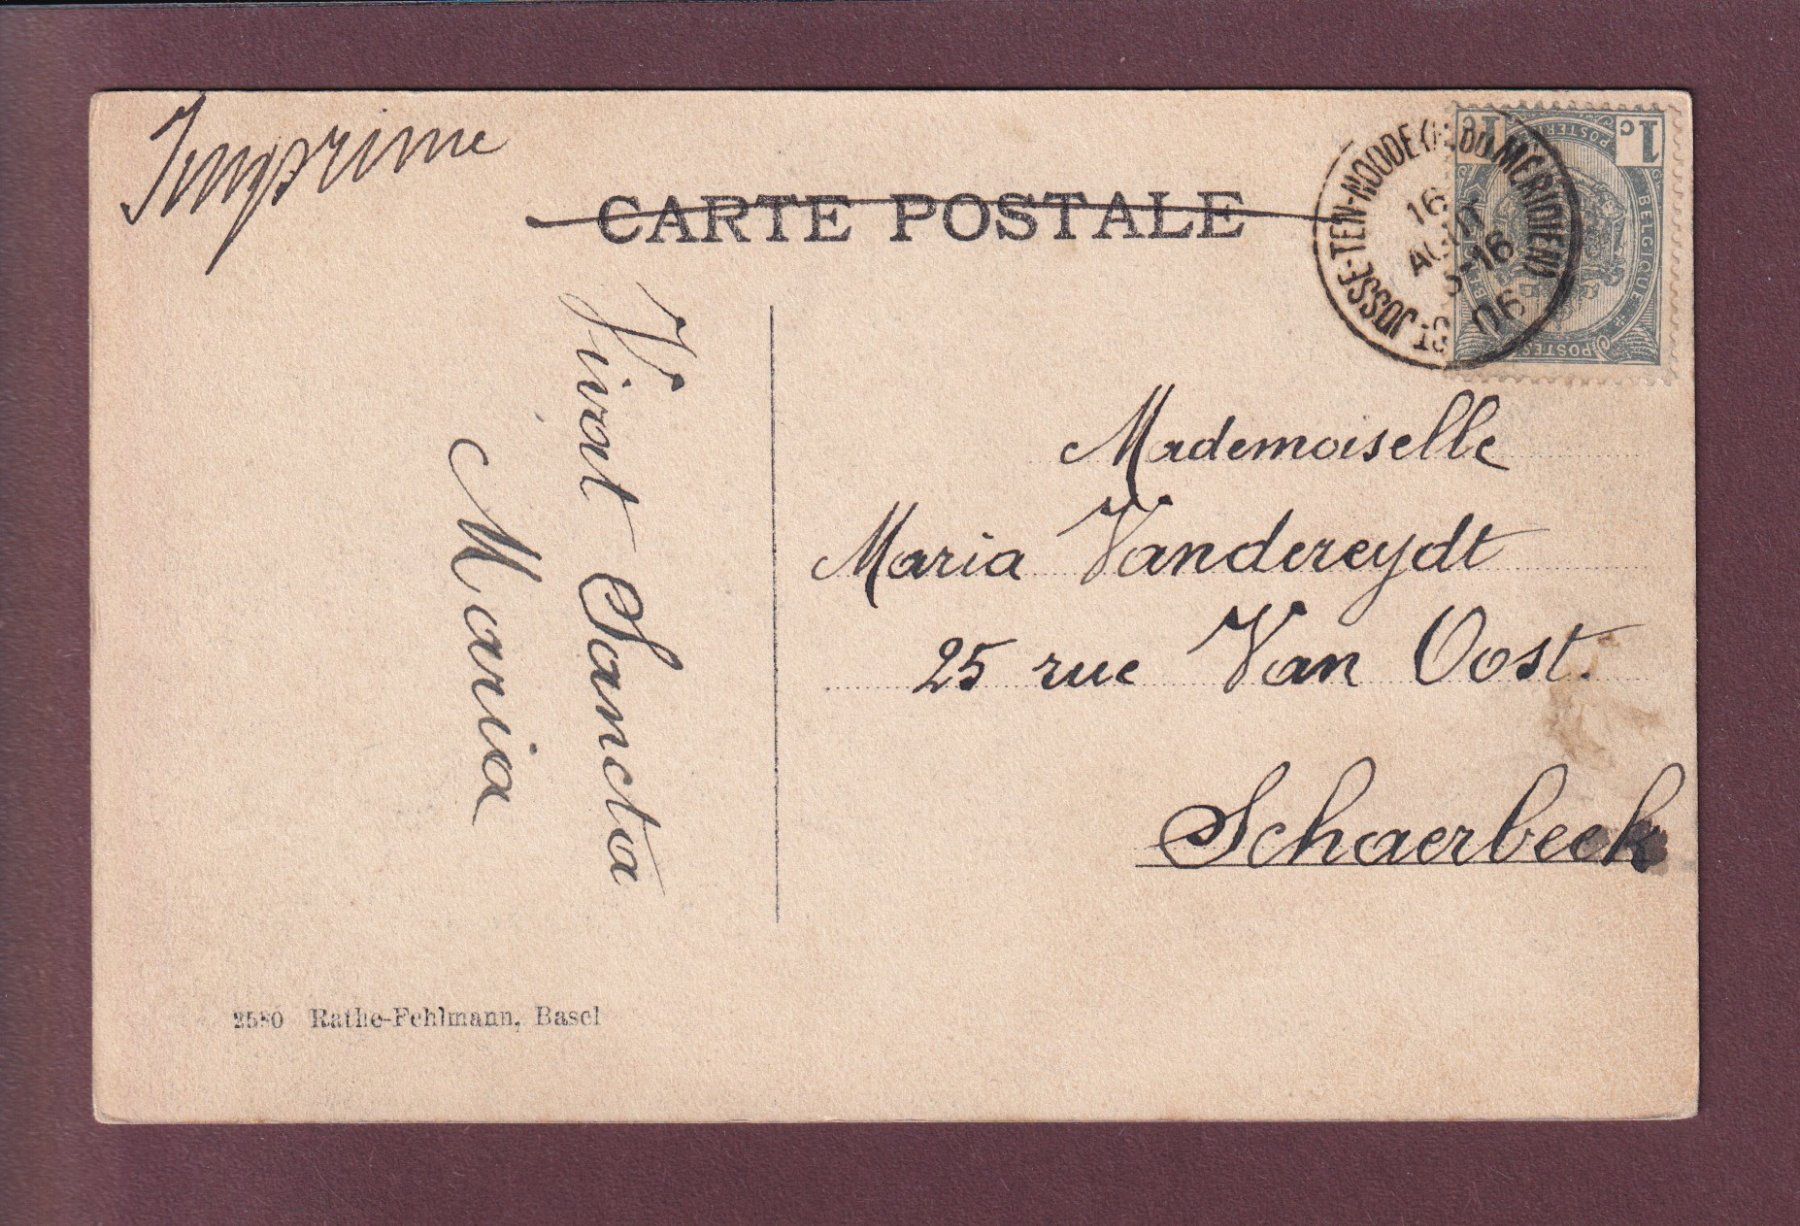 Imprime
CARTE POSTALE
1c 1c
BELGIQUE
POSTES
ST JOSSE-TEN-NOODE
DU MERIDIEN)
16
-16
06
Mademoiselle
Maria Vandereydt
25 rue Van Oost.
Schaerbeek
Vivat Sancta
Maria
Rathe-Fehlmann, Basel